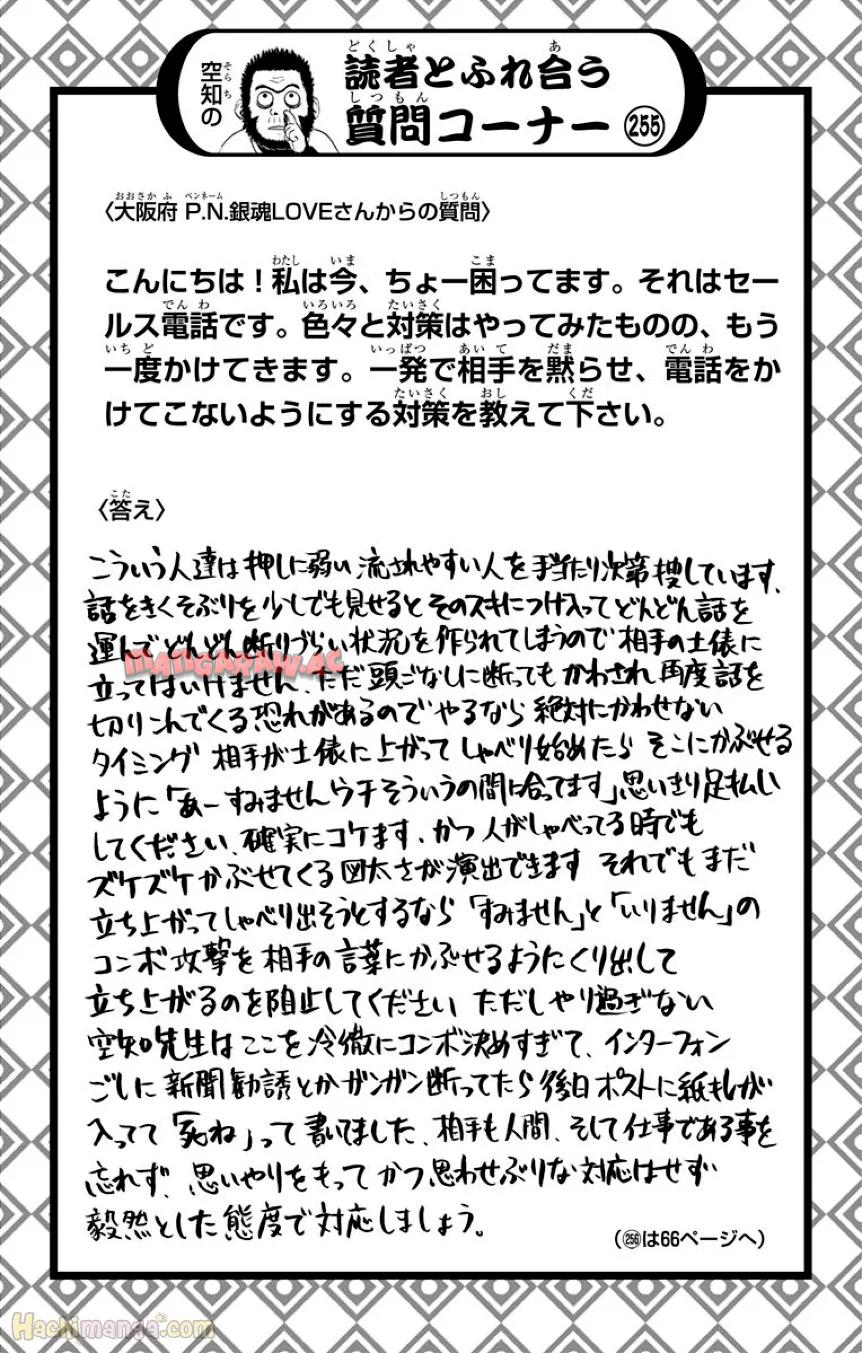 空知の
読者とふれ合う
質問コーナー 255
〈大阪府 P.N.銀魂LOVEさんからの質問〉
こんにちは！私は今、ちょー困ってます。それはセー
ルス電話です。色々と対策はやってみたものの、もう
一度かけてきます。一発で相手を黙らせ、電話をか
けてこないようにする対策を教えて下さい。
〈答え〉
こういう人達は押しに弱い流されやすい人を手当たり次第捜しています、
話をきくそぶりを少しでも見せるとそのスキにつけ入ってどんどん話を
運んでどんどん断りづらい状況を作られてしまうので相手の土俵に
MANGARAW.AC
立ってはいけません、ただ頭ごなしに断ってもかわされ再度話を
切りこんでくる恐れがあるのでやるなら絶対にかわせない
タイミング 相手が土俵に上がってしゃべり始めたら そこにかぶせる
ように「あーすみませんウチそういうの間に合ってます」思いきり足払いし
してください、確実にコケます、かつ人がしゃべってる時でも
ズケズケかぶせてくる図太さが演出できます それでもまだ
立ち上がってしゃべり出そうとするなら「すみません」と「いりません」の
コンボ攻撃を相手の言葉にかぶせるようにくり出して
立ち上がるのを阻止してください ただしやり過ぎない
空知先生はここを冷徹にコンボ決めすぎて、インターフォン
ごしに新聞勧誘とかガンガン断ってたら後日ポストに紙キレが
入ってて「死ね」って書いてました、相手も人間、そして仕事である事を
忘れず、思いやりをもって かつ思わせぶりな対応はせず
毅然とした態度で対応しましょう。
（256は66ページへ）
Hachimanga.com